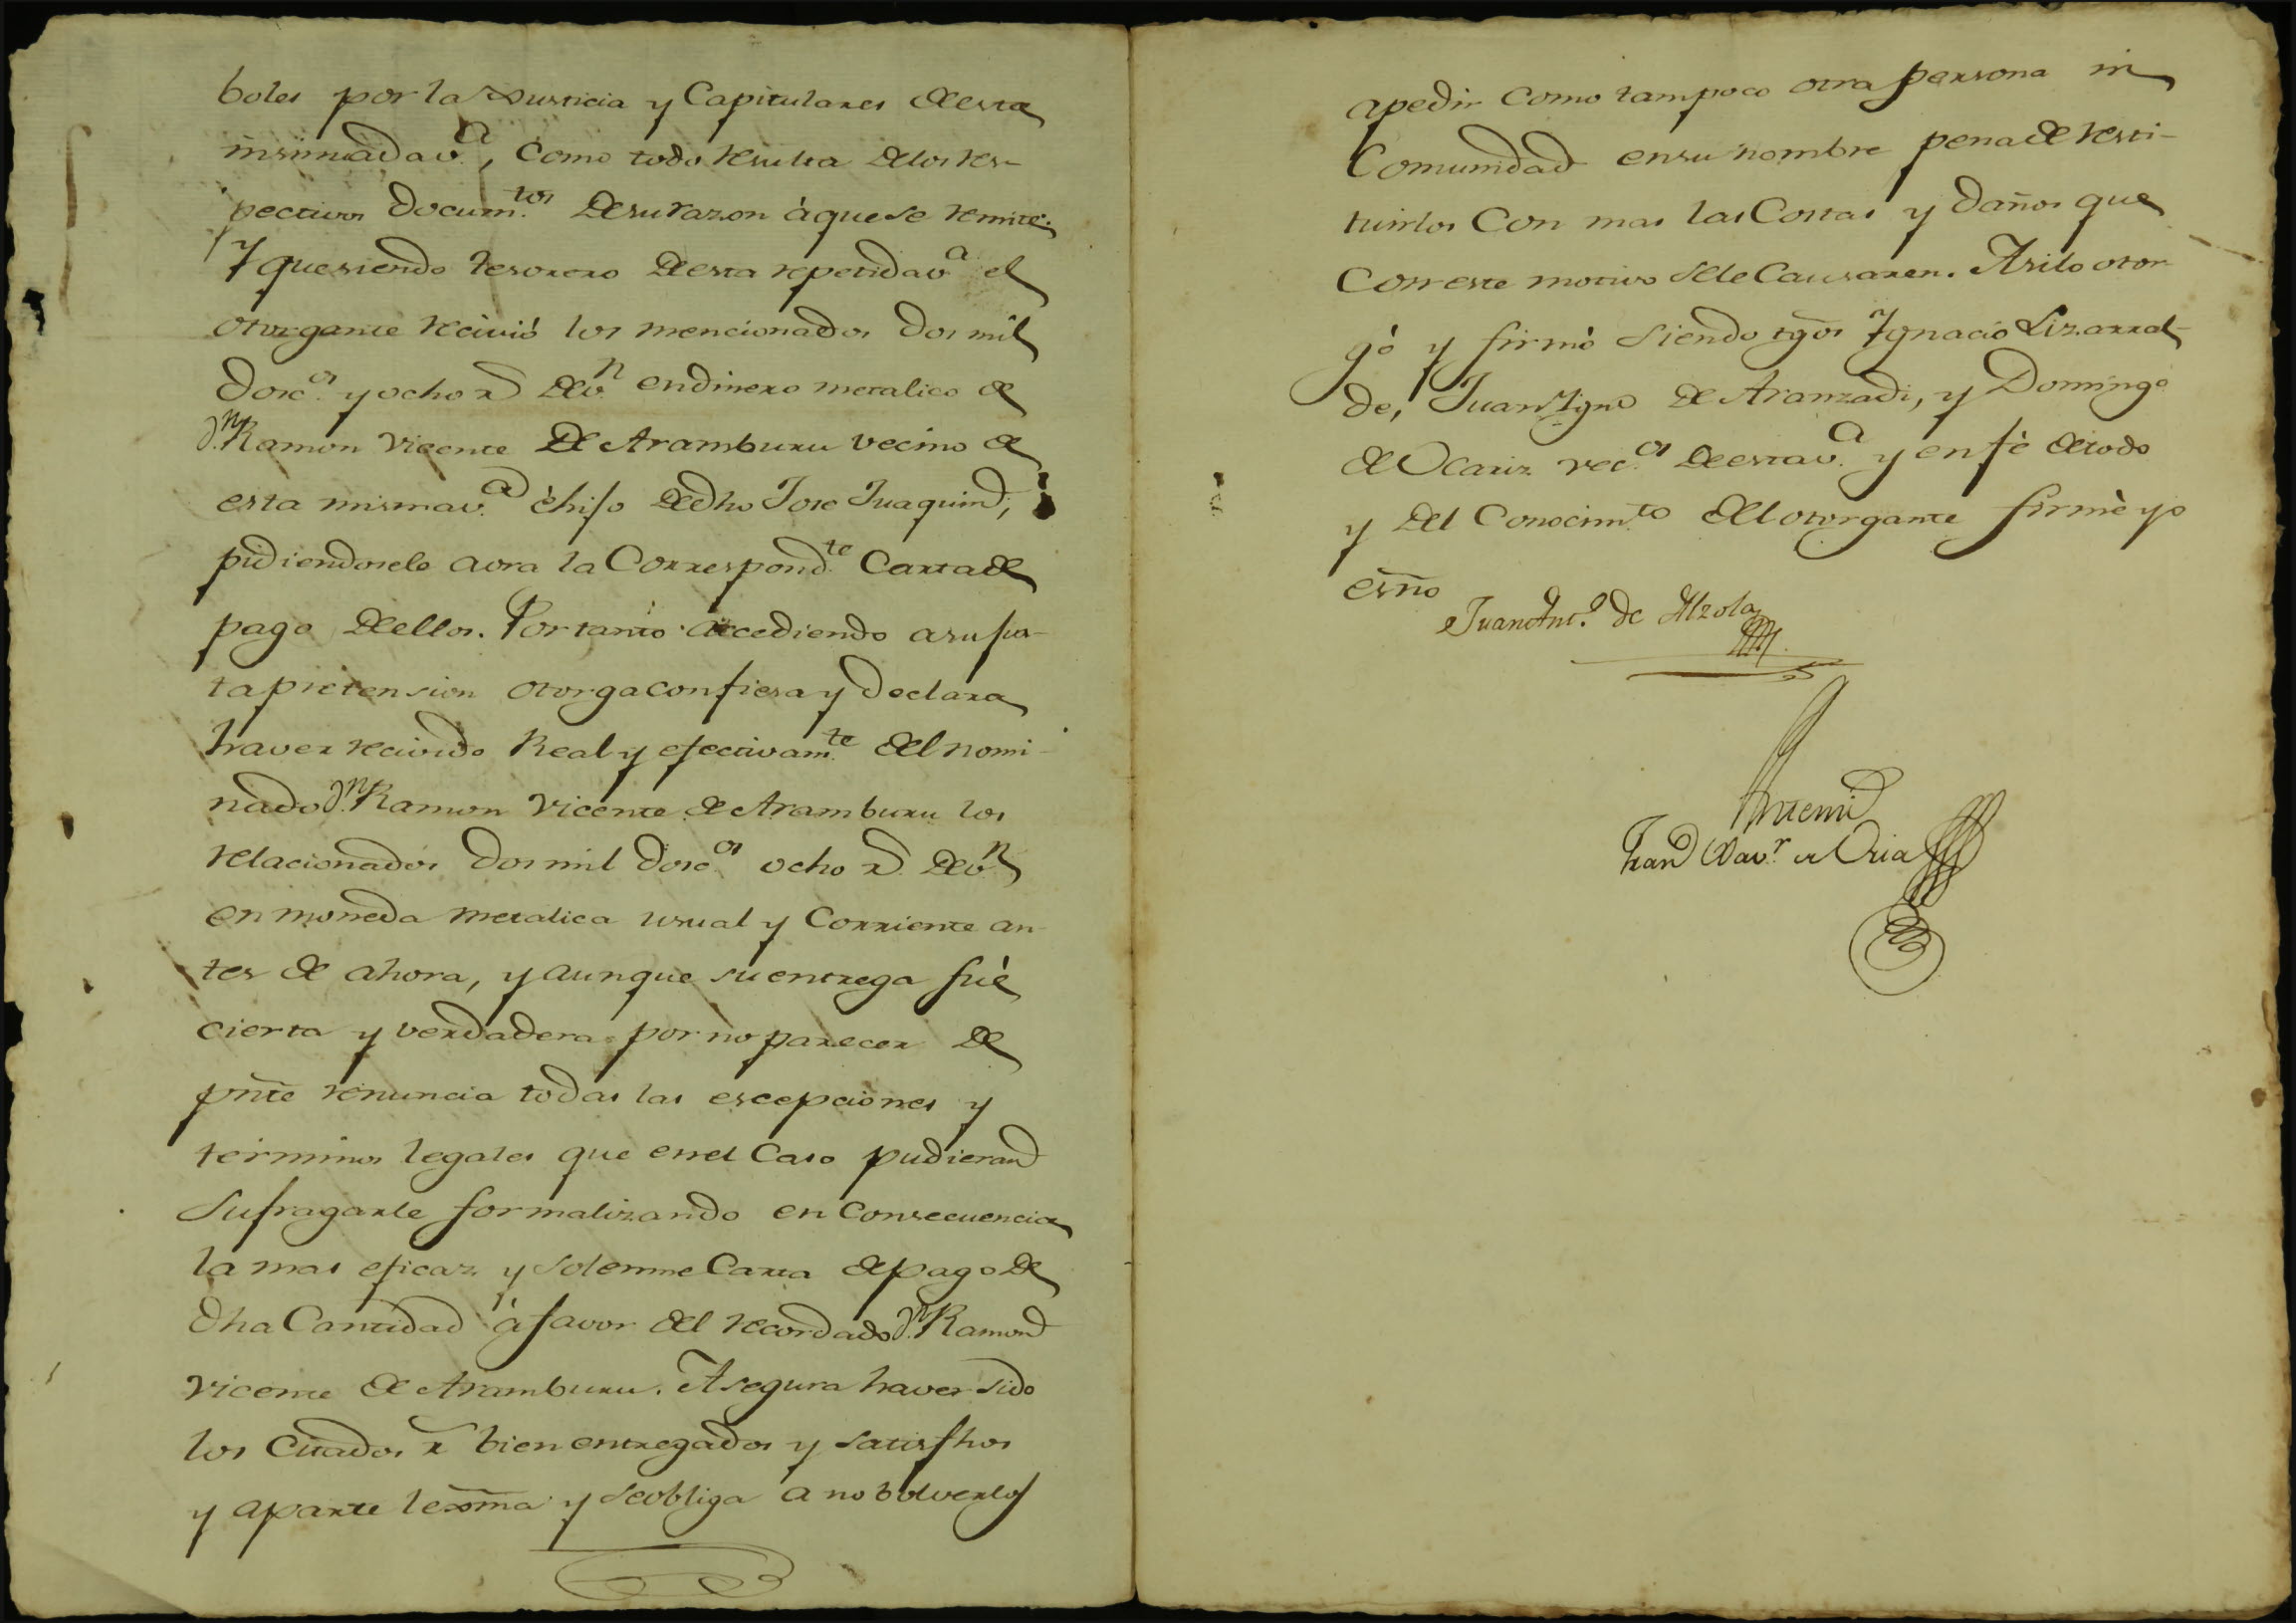 boles por la Justicia y Capitulares de esta
insinuada v.ª, Como todo resulta de los res-
pectivos docum.tos de su razon à que se remite.
Y que siendo tesorero de esta repetida v.ª el
otorgante recivió los mencionados dos mil
dosc.os y ocho r.s de v.n en dinero metalico de
d.n Ramon Vicente de Aramburu vecino de
esta misma v.ª è hijo de dho Jose Juaquin,
pidiendosele aora la Correspond.te Carta de
pago de ellos. Por tanto accediendo a su jus-
ta pretension otorga confiesa y declara
haver recivido Real y efectivam.te del nomi-
nado d.n Ramon Vicente de Aramburu los
relacionados dos mil dosc.os ocho r.s de v.n
en moneda metalica usual y Corriente an-
tes de ahora, y aunque su entrega fué
cierta y verdadera por no parecer de
pnte renuncia todas las escepciones y
terminos legales que en el Caso pudieran
Sufragarle formalizando en Consecuencia
la mas eficaz y solemne Carta de pago de
dha Cantidad à favor del recordado d.n Ramon
Vicente de Aramburu. Asegura haver sido
los Citados r.s bien entregados y satisfhos
y a parte lexma y se obliga a no bolverlos
apedir Como tampoco otra persona ni
Comunidad en su nombre pena de resti-
tuirlos Con mas las Costas y daños que
Con este motivo se le Causaren. Asi lo otor-
gó y firmó Siendo tgos Ygnacio Lizarral-
de, Juan Ygn.o de Aranzadi, y Domingo
de Ocariz vec.os de esta v.ª y en fé de todo
y del Conocim.to del otorgante firmè yo
esño
Juan Ant.o de Alzola
Antemi
Fran Xav.r de Oria